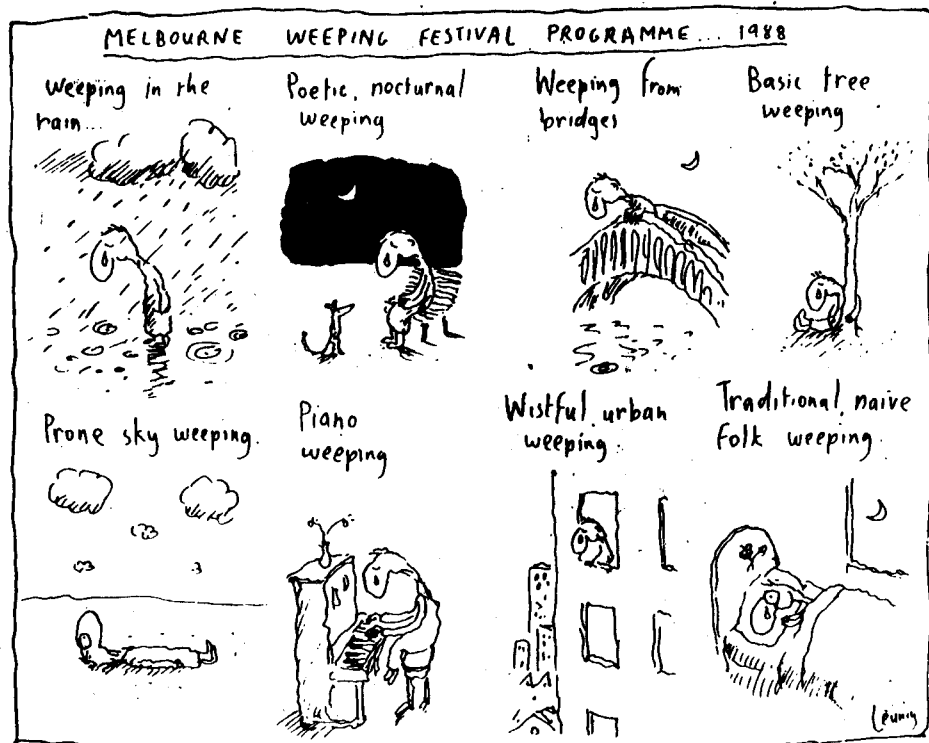 MELBOURNE WEEPING FESTIVAL PROGRAMME... 1988
Weeping in the
rain...
Poetic, nocturnal
weeping
Weeping from
bridges
Basic tree
weeping
Prone sky weeping.
Piano
weeping
Wistful, urban
weeping
Traditional, naive
folk weeping
Leunig